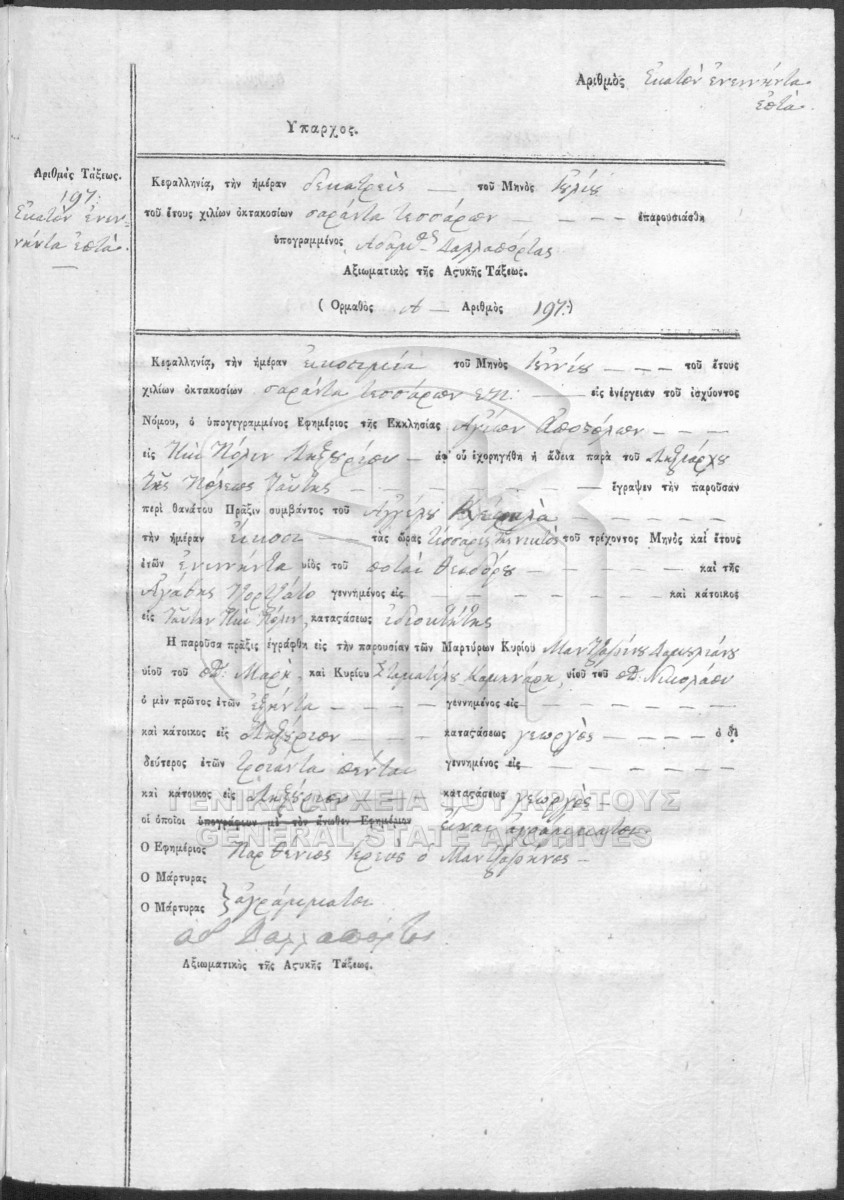 Αριθμὸς Ἑκατὸν ἐνεννῆντα
ἑπτὰ.
Υπαρχος.
Αριθμὸς Τάξεως.
197:
Ἑκατὸν ἐνεν-
νῆντα ἑπτὰ.
Κεφαλληνίᾳ, τὴν ἡμέραν δεκατρεὶς — τοῦ Μηνὸς Ἰουλίου
τοῦ ἔτους χιλίων ὀκτακοσίων σαράντα τεσσάρων — — — — ἐπαρουσιάσθη
ὑπογραμμένος Δαλλαπόρτας
Αξιωματικὸς τῆς Αςυκῆς Τάξεως.
( Ορμαθὸς Α — Αριθμὸς 197:)
Κεφαλληνίᾳ, τὴν ἡμέραν εἰκοσιμία τοῦ Μηνὸς Ἰουνίου — — — τοῦ ἔτους
χιλίων ὀκτακοσίων σαράντα τεσσάρων — — εἰς ἐνέργειαν τοῦ ἰσχύοντος
Νόμου, ὁ ὑπογεγραμμένος Εφημέριος τῆς Εκκλησίας Ἁγίων Ἀποςόλων — — —
εἰς Πόλιν Ληξουρίου — ἀφ' οὗ ἐχορηγήθη ἡ ἄδεια παρὰ τοῦ Ληξιάρχου
τῆς Πόλεως Ταύτης — — — — — — — — ἔγραψεν τὴν παροῦσαν
περὶ θανάτου Πρᾶξιν συμβάντος τοῦ Ἀγγέλου — — — —
τὴν ἡμέραν εἴκοσι — τὰς ὥρας τέσσαρις τῆς νυκτὸς τοῦ τρέχοντος Μηνὸς καὶ ἔτους
ἐτῶν ἐνεννῆντα υἱὸς τοῦ ποταὶ Θεοδώρου — — — — καὶ τῆς
Ἀγάθης γεννημένος εἰς — — — — — — καὶ κάτοικος
εἰς Ταύτην Πόλιν, καταςάσεως ἰδιοκτήτης
Η παροῦσα πρᾶξις ἐγράφθη εἰς τὴν παρουσίαν τῶν Μαρτύρων Κυρίου
υἱοῦ τοῦ Μαρῆ, καὶ Κυρίου Σταματέλου Καμηνάρη, υἱοῦ τοῦ Νικολάου
ὁ μὲν πρῶτος ἐτῶν ἑξῆντα — — — — γεννημένος εἰς — — — — — —
καὶ κάτοικος εἰς Ληξούριον — — — καταςάσεως γεωργὸς — — — — ὁ δὲ
δεύτερος ἐτῶν τριάντα πέντε γεννημένος εἰς — — — — — —
καὶ κάτοικος εἰς Ληξούριον καταςάσεως γεωργὸς —
οἱ ὁποῖοι ὑπογράφουν μὲ τὸν ἄνωθεν Εφημέριον εἶναι ἀγράμματοι
Ο Εφημέριος Παρθένιος Ἱερεὺς ὁ —
Ο Μάρτυρας
Ο Μάρτυρας } ἀγράμματοι
Δαλλαπόρτας
Αξιωματικὸς τῆς Αςυκῆς Τάξεως.
ΓΕΝΙΚΑ ΑΡΧΕΙΑ ΤΟΥ ΚΡΑΤΟΥΣ
GENERAL STATE ARCHIVES